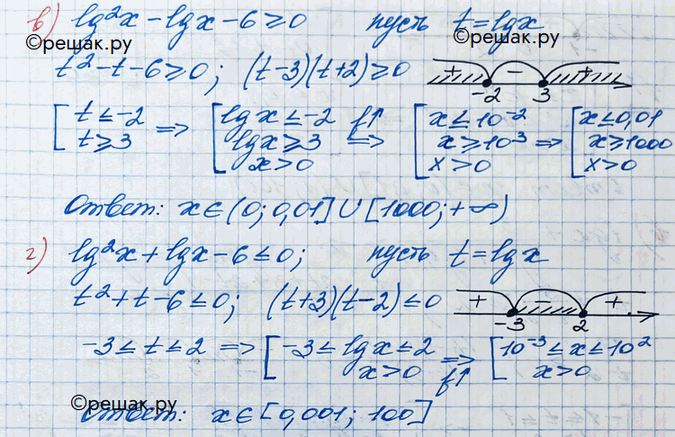 в) lg²x - lgx - 6 ≥ 0 пусть t = lgx
©решак.ру
t² - t - 6 ≥ 0; (t-3)(t+2) ≥ 0 + - + -2 3
[ t ≤ -2 t ≥ 3 => [ lgx ≤ -2 lgx ≥ 3 x > 0 f↑ => [ x ≤ 10⁻² x ≥ 10⁻³ x > 0 => [ x ≤ 0,01 x ≥ 1000 x > 0
Ответ: x ∈ (0; 0,01] ∪ [1000; +∞)
г) lg²x + lgx - 6 ≤ 0; пусть t = lgx
t² + t - 6 ≤ 0; (t+3)(t-2) ≤ 0 + - + -3 2
-3 ≤ t ≤ 2 => [ -3 ≤ lgx ≤ 2 x > 0 => f↑ [ 10⁻³ ≤ x ≤ 10² x > 0
©решак.ру
Ответ: x ∈ [0,001; 100]
©решак.ру